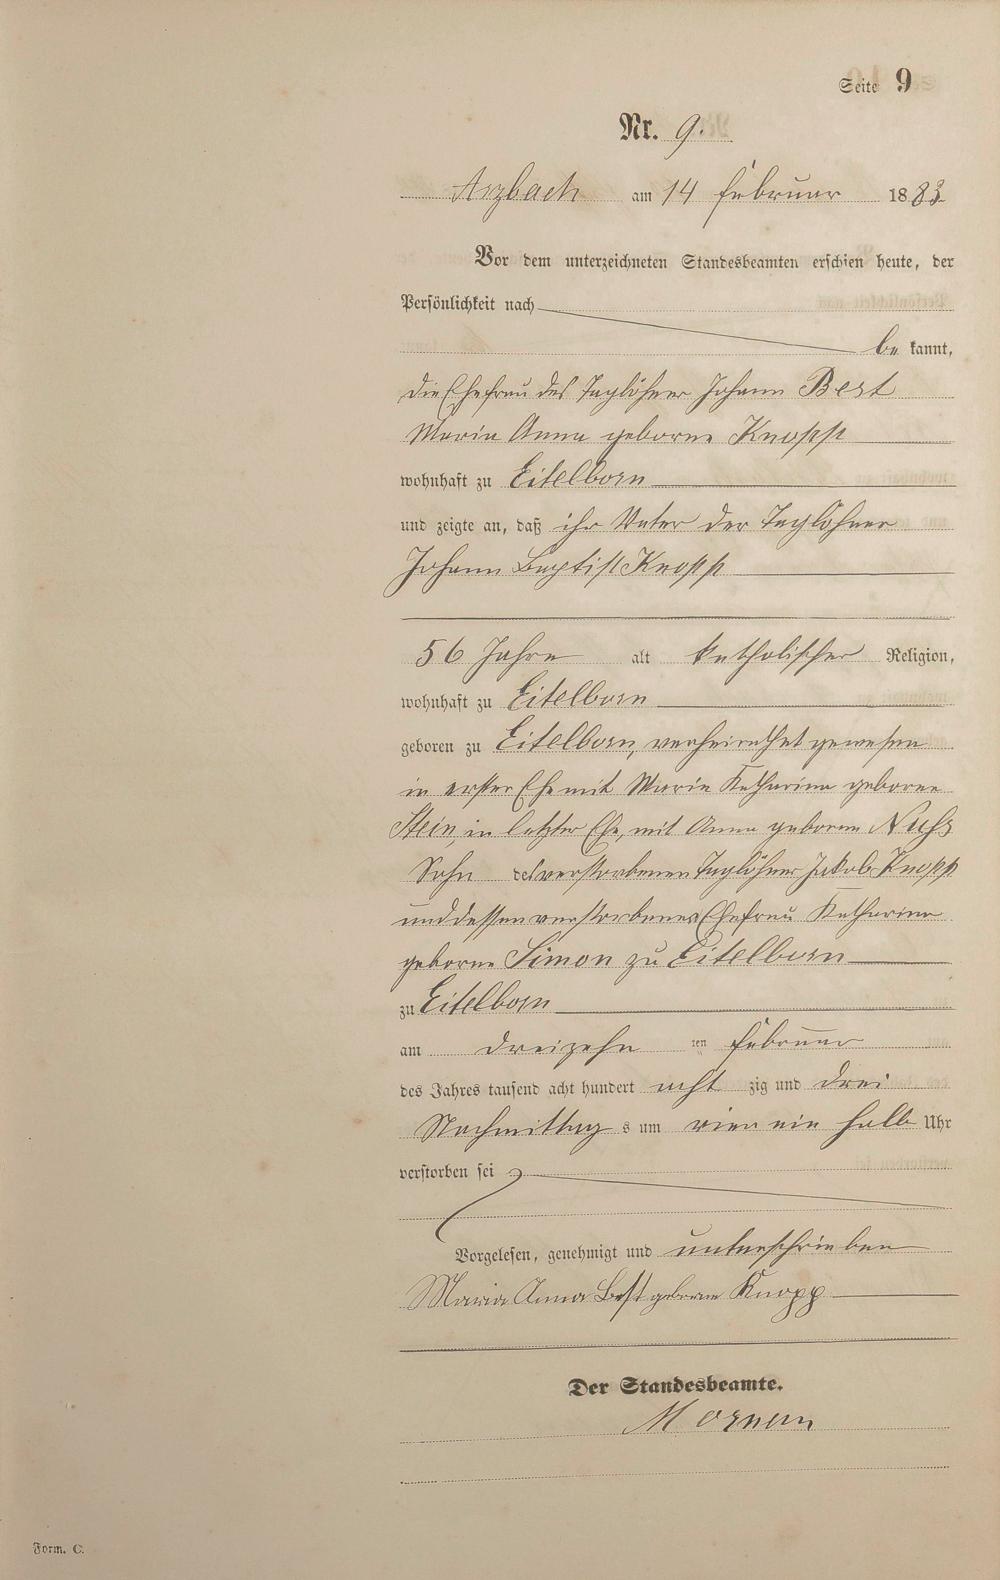 Seite 9
Nr. 9.
Arzbach am 14 Februar 1883
Vor dem unterzeichneten Standesbeamten erschien heute, der
Persönlichkeit nach
be kannt,
die Ehefrau des Taglöhner Johann Best
Maria Anna geborne Knopp
wohnhaft zu Eitelborn
und zeigte an, daß ihr Vater der Taglöhner
Johann Baptist Knopp
56 Jahre alt katholischer Religion,
wohnhaft zu Eitelborn
geboren zu Eitelborn, verheirathet gewesen
in erster Ehe mit Maria Katharina geborne
Stein, in letzter Ehe, mit Anna geborne
Sohn des verstorbenen Taglöhner Jakob Knopp
und dessen verstorbenen Ehefrau Katharina
geborne Simon zu Eitelborn
zu Eitelborn
am dreizehn ten Februar
des Jahres tausend acht hundert acht zig und drei
Nachmittag s um vier ein halb Uhr
verstorben sei
Vorgelesen, genehmigt und unterschrieben
Maria Anna Best geborne Knopp
Der Standesbeamte.
Form. C.